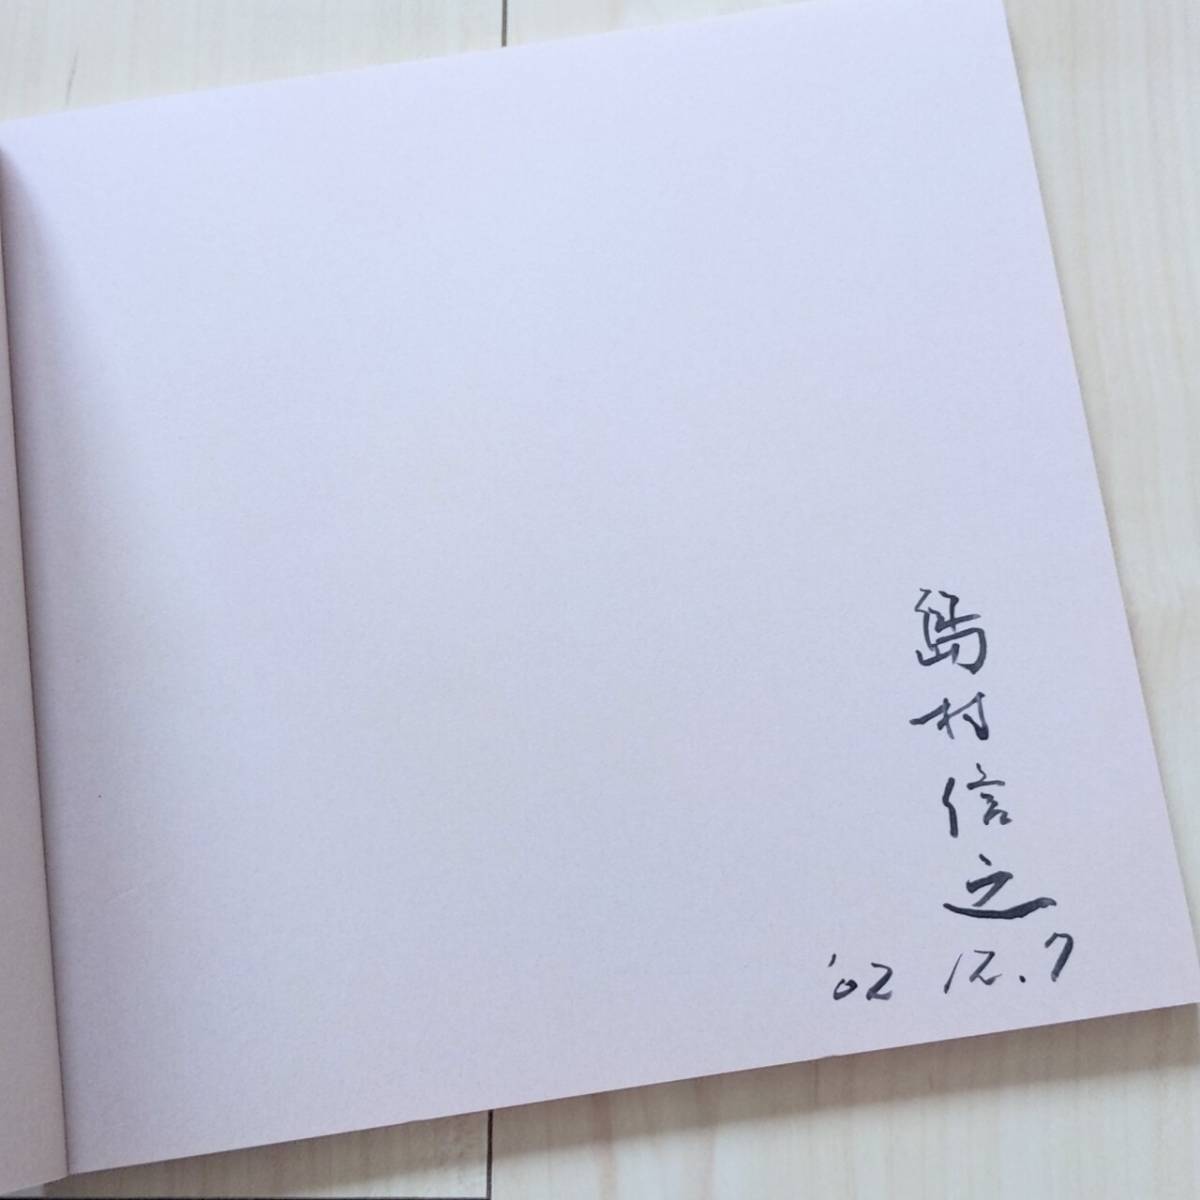 島村信之
'02 12.7